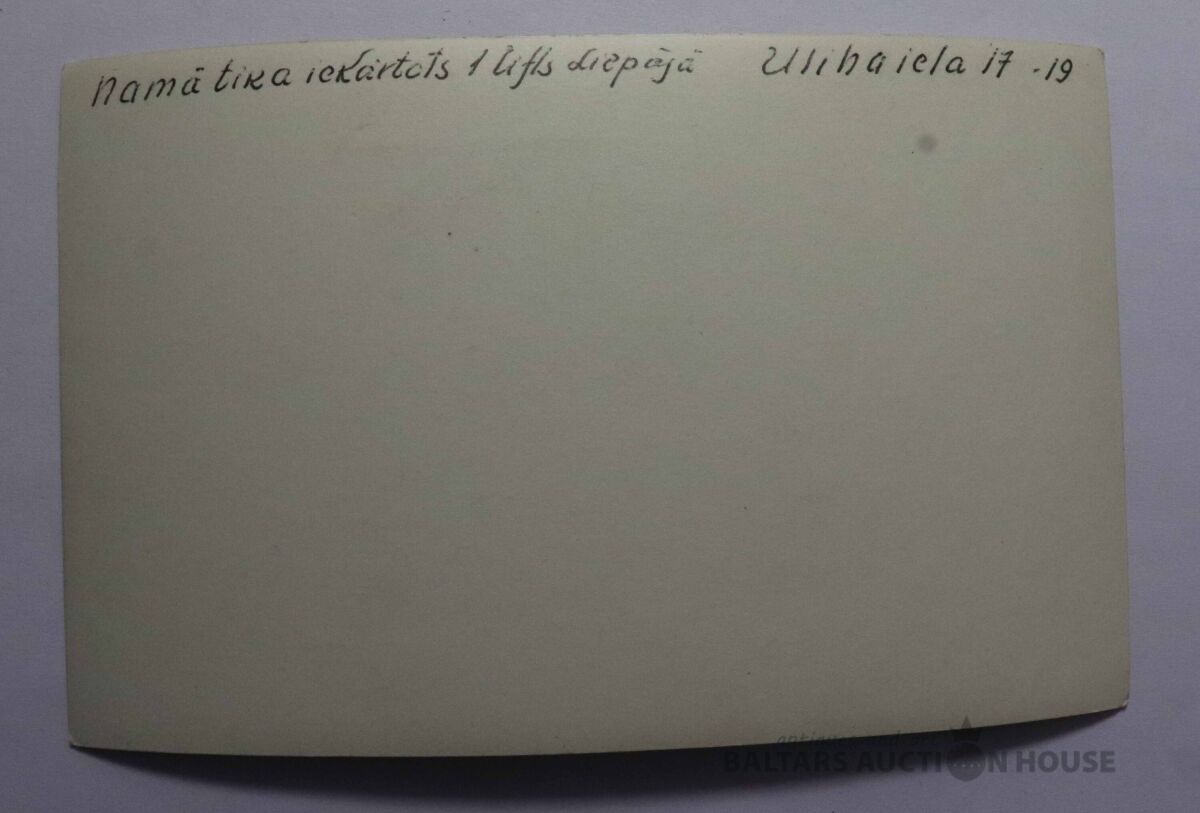 Namā tika iekārtots 1 lifts Liepājā Uliha iela 17-19
BALTARS AUCTION HOUSE